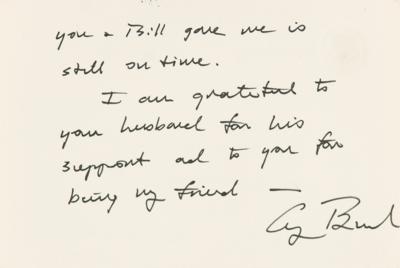 you & Bill gave me is
still on time.
I am grateful to
your husband for his
support and to you for
being my friend —